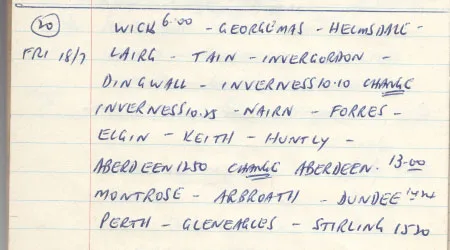 20 WICK 6.00 - GEORGEMAS - HELMSDALE -
FRI 18/7 LAIRG - TAIN - INVERGORDON -
DINGWALL - INVERNESS 10.10 CHANGE
INVERNESS 10.25 - NAIRN - FORRES -
ELGIN - KEITH - HUNTLY -
ABERDEEN 1250 CHANGE ABERDEEN. 13-00
MONTROSE - ARBROATH - DUNDEE
PERTH - GLENEAGLES - STIRLING 1520